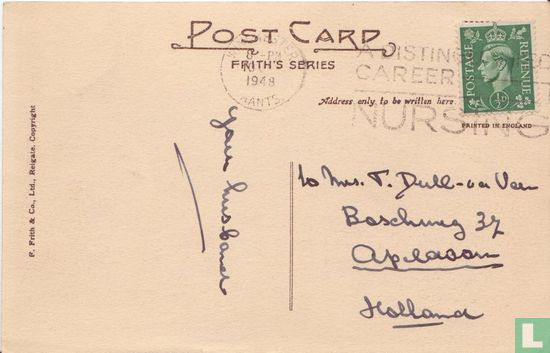 POST CARD
FRITH'S SERIES
8 - PM
1948
HANTS
A DISTING
CAREER
NURSING
POSTAGE
REVENUE
½D
Address only to be written here.
PRINTED IN ENGLAND
F. Frith & Co., Ltd., Reigate. Copyright
your husband
to Mrs. T. Dull - v.a Veen
Boschweg 37
Apeldoorn
Holland
L